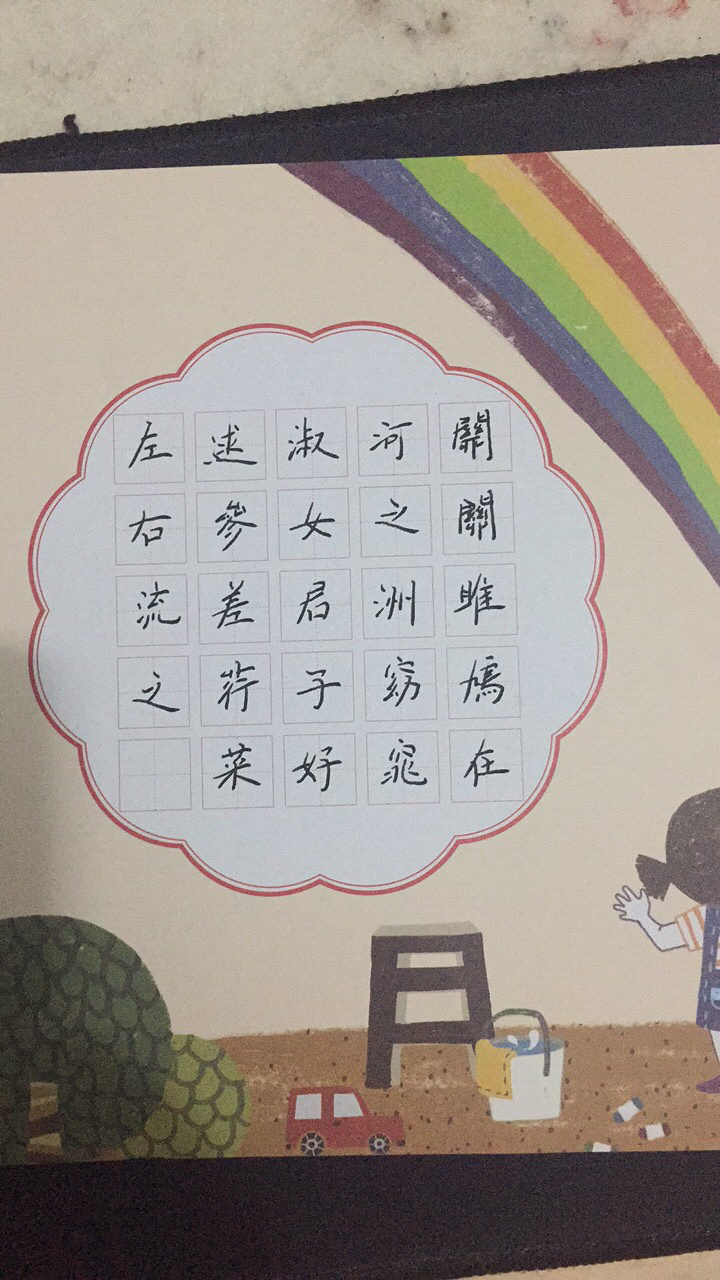 關關雎鳩在
河之洲窈窕
淑女君子好
逑參差荇菜
左右流之